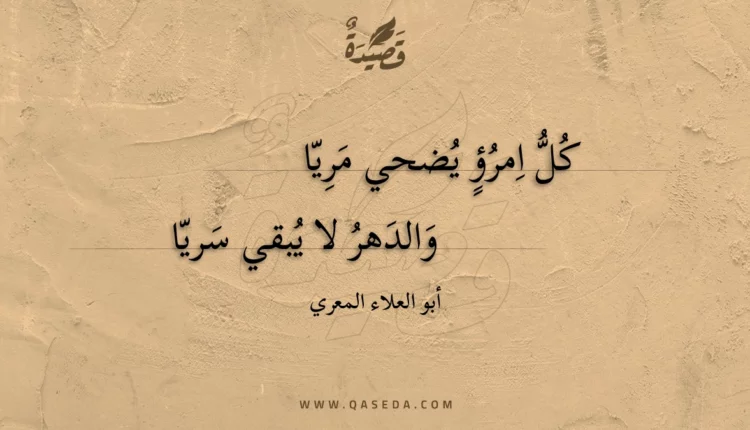 قَصِيدَةٌ
كُلُّ اِمرُؤٍ يُضحي مَرِيّا
وَالدَهرُ لا يُبقي سَريّا
أبو العلاء المعري
WWW.QASEDA.COM